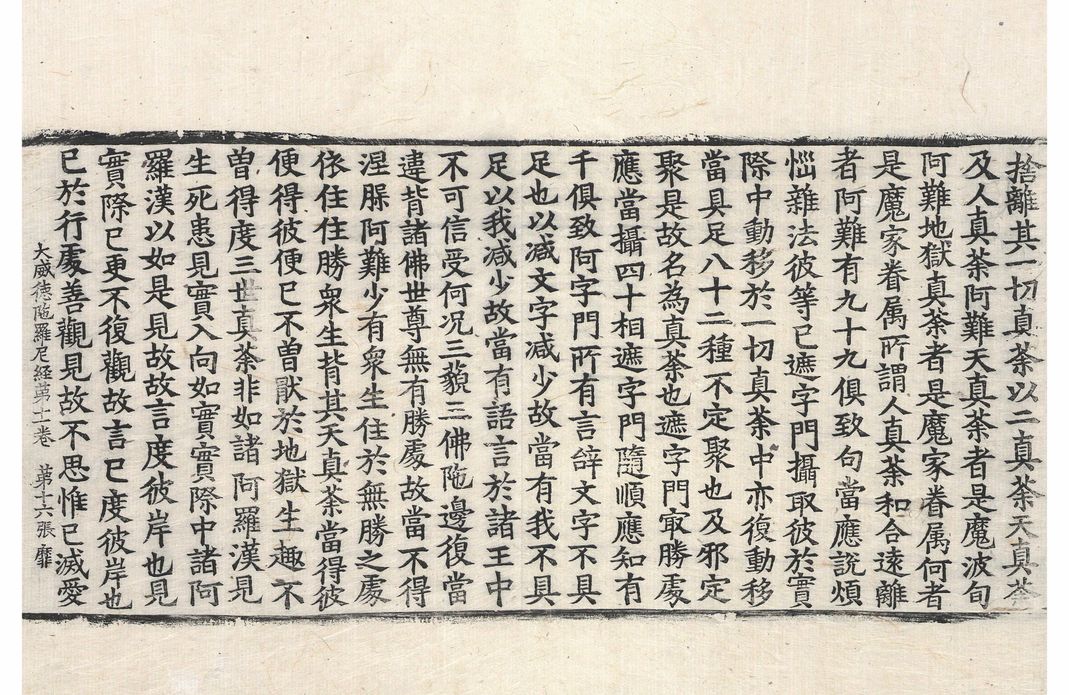 捨離其一切真荼以二真荼天真荼
及人真荼阿難天真荼者是魔波旬
阿難地獄真荼者是魔家眷属何者
是魔家眷属所謂人真荼和合遠離
者阿難有九十九俱致句當應說煩
惱雜法彼等已遮字門攝取彼於實
際中動移於一切真荼中亦復動移
當具足八十二種不定聚也及邪定
聚是故名為真荼也遮字門㝡勝處
應當攝四十相遮字門隨順應知有
千俱致阿字門所有言辝文字不具
足也以减文字减少故當有我不具
足以我减少故當有語言於諸王中
不可信受何况三藐三佛陁邊復當
違背諸佛世尊無有勝處故當不得
涅槃阿難少有衆生住於無勝之處
依住住勝衆生背其天真荼當得彼
便得彼便已不曽猒於地獄生趣不
曽得度三世真荼非如諸阿羅漢見
生死患見實入向如實實際中諸阿
羅漢以如是見故故言度彼岸也見
實際已更不復觀故言已度彼岸也
已於行處善觀見故不思惟已滅愛
大威德陁羅尼経第十一卷　第十六張　靡